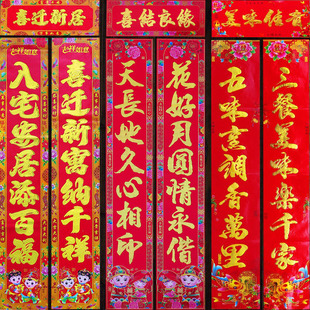 喜迁新居
喜迁新寓纳千祥
入宅安居添百福
喜結良緣
花好月圓情永偕
天長地久心相印
美味佳肴
三餐美味樂千家
五味烹調香萬里